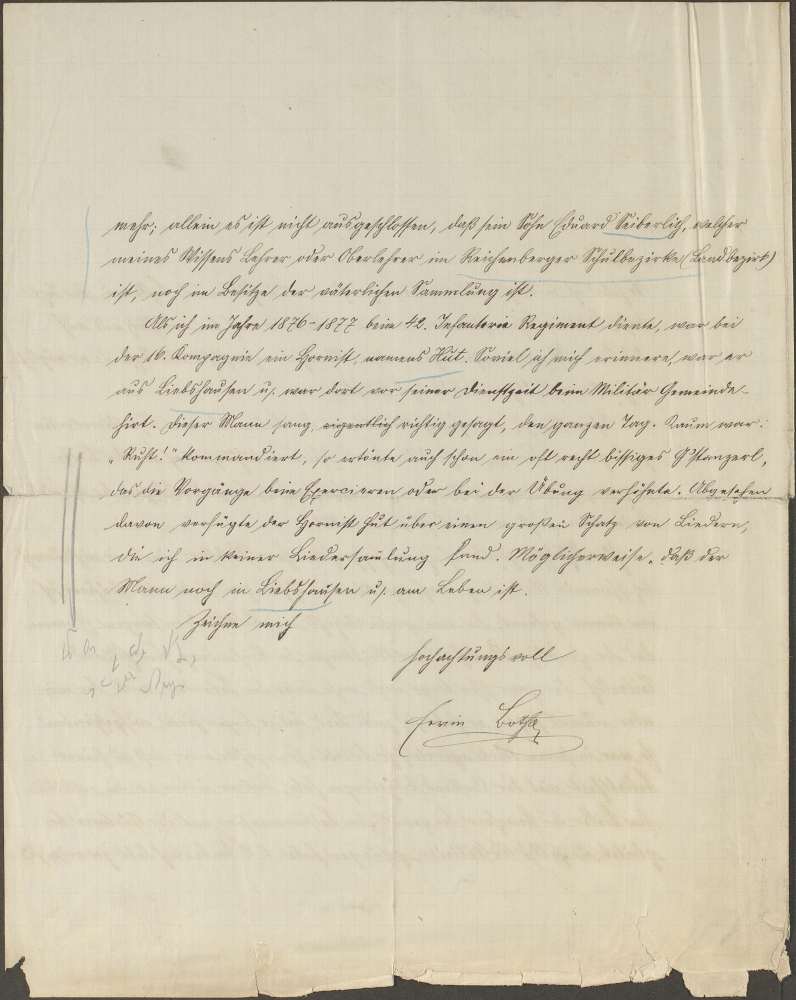 mehr; allein es ist nicht ausgeschlossen, daß sein Sohn Eduard Seiberlich, welcher
meines Wissens Lehrer oder Oberlehrer im Reichenberger Schulbezirke (Landbezirk)
ist, noch im Besitze der väterlichen Sammlung ist.
Als ich im Jahre 1876-1877 beim 42. Infanterie Regiment diente, war bei
der 16. Kompagnie ein Hornist, namens Hut. Soviel ich mich erinnere, war er
aus Liebshausen u. war dort vor seiner Dienstzeit beim Militär Gemeinde-
hirt. Dieser Mann sang, eigentlich richtig gesagt, den ganzen Tag. Kaum war:
"Ruht!" kommandiert, so ertönte auch schon ein oft recht bissiges Gstanzerl,
das die Vorgänge beim Exercieren oder bei der Übung verhöhnte. Abgesehen
davon verfügte der Hornist Hut über einen großen Schatz von Liedern,
die ich in keiner Liedersammlung fand. Möglicherweise, daß der
Mann noch in Liebshausen u. am Leben ist.
Zeichne mich
hochachtungsvoll
Ervin